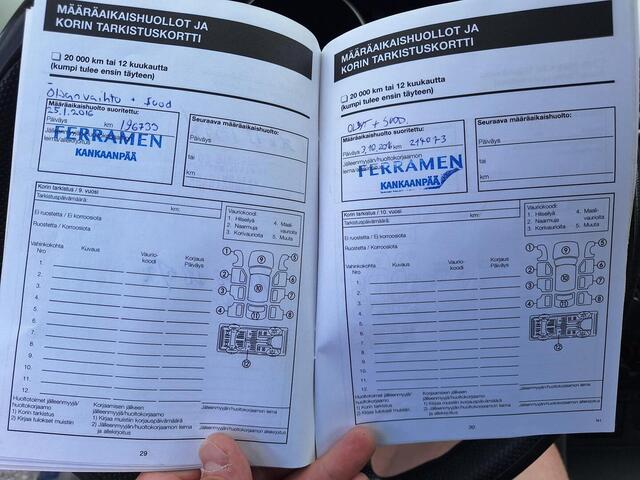 MÄÄRÄAIKAISHUOLLOT JA
KORIN TARKISTUSKORTTI
20 000 km tai 12 kuukautta
(kumpi tulee ensin täyteen)
Öljynvaihto + suod
Määräaikaishuolto suoritettu:
25.1.2016
Päiväys km 196733
FERRAMEN
KANKAANPÄÄ
Seuraava määräaikaishuolto:
Päiväys
tai
km
Korin tarkistus / 9. vuosi
Tarkistuspäivämäärä: km:
Ei ruostetta / Ei korroosiota
Ruostetta / Korroosiota
Vauriokoodi:
1. Hilseilyä 4. Maali-
2. Naarmuja vaurioita
3. Korivaurioita 5. Muuta
Vahinkokohta Kuvaus Vaurio- Korjaus
Nro koodi Päiväys
1.
2.
3.
4.
5.
6.
7.
8.
9.
10.
11.
12.
1 2 3 4 5 6 7 8 9 10 11 12
Huoltotoimet jälleenmyyjä/
huoltokorjaamo
1) Korin tarkistus
2) Kirjaa tulokset muistiin
Korjaamisen jälkeen
jälleenmyyjä/huoltokorjaamo
1) Kirjaa muistiin korjauspäivämäärä
2) Jälleenmyyjän/huoltokorjaamon leima
ja allekirjoitus
Jälleenmyyjän/huoltokorjaamon leima
ja allekirjoitus
29
MÄÄRÄAIKAISHUOLLOT JA
KORIN TARKISTUSKORTTI
20 000 km tai 12 kuukautta
(kumpi tulee ensin täyteen)
+ SUOD.
Määräaikaishuolto suoritettu:
Päiväys 3.10.2016 km 214073
Jälleenmyyjän/huoltokorjaamon
FERRAMEN
KANKAANPÄÄ
Seuraava määräaikaishuolto:
Päiväys
tai
km
Korin tarkistus / 10. vuosi
Tarkistuspäivämäärä: km:
Ei ruostetta / Ei korroosiota
Ruostetta / Korroosiota
Vauriokoodi:
1. Hilseilyä 4. Maali-
2. Naarmuja vaurioita
3. Korivaurioita 5. Muuta
Vahinkokohta Kuvaus Vaurio- Korjaus
Nro koodi Päiväys
1.
2.
3.
4.
5.
6.
7.
8.
9.
10.
11.
12.
1 2 3 4 5 6 7 8 9 10 11 12
Huoltotoimet jälleenmyyjä/
huoltokorjaamo
1) Korin tarkistus
2) Kirjaa tulokset muistiin
Korjaamisen jälkeen
jälleenmyyjä/huoltokorjaamo
1) Kirjaa muistiin korjauspäivämäärä
2) Jälleenmyyjän/huoltokorjaamon leima
ja allekirjoitus
Jälleenmyyjän/huoltokorjaamon leima
ja allekirjoitus
30